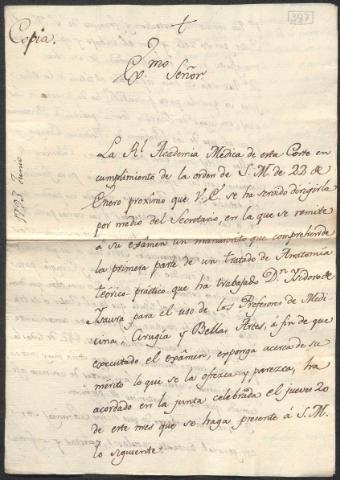 397
Copia.
Exmo Señor
1793 Junio
La Rl. Academia Médica de esta Corte en
cumplimiento de la orden de S. M. de 22 de
Enero proximo que V. E. se ha servido dirigirla
por medio del Secretario, en la que se remite
a su examen un manuscrito que comprehende
la primera parte de un tratado de Anatomia
teórico práctico que ha trabajado Dn. Isidoro de
Isaura para el uso de los Profesores de Medi
cina, Cirugía y Bellas Artes, a fin de que
executado el exâmen, exponga acerca de su
mérito lo que se la ofrezca y parezca, ha
acordado en la junta celebrada el jueves 20
de este mes que se haga presente á S. M.
lo siguiente.